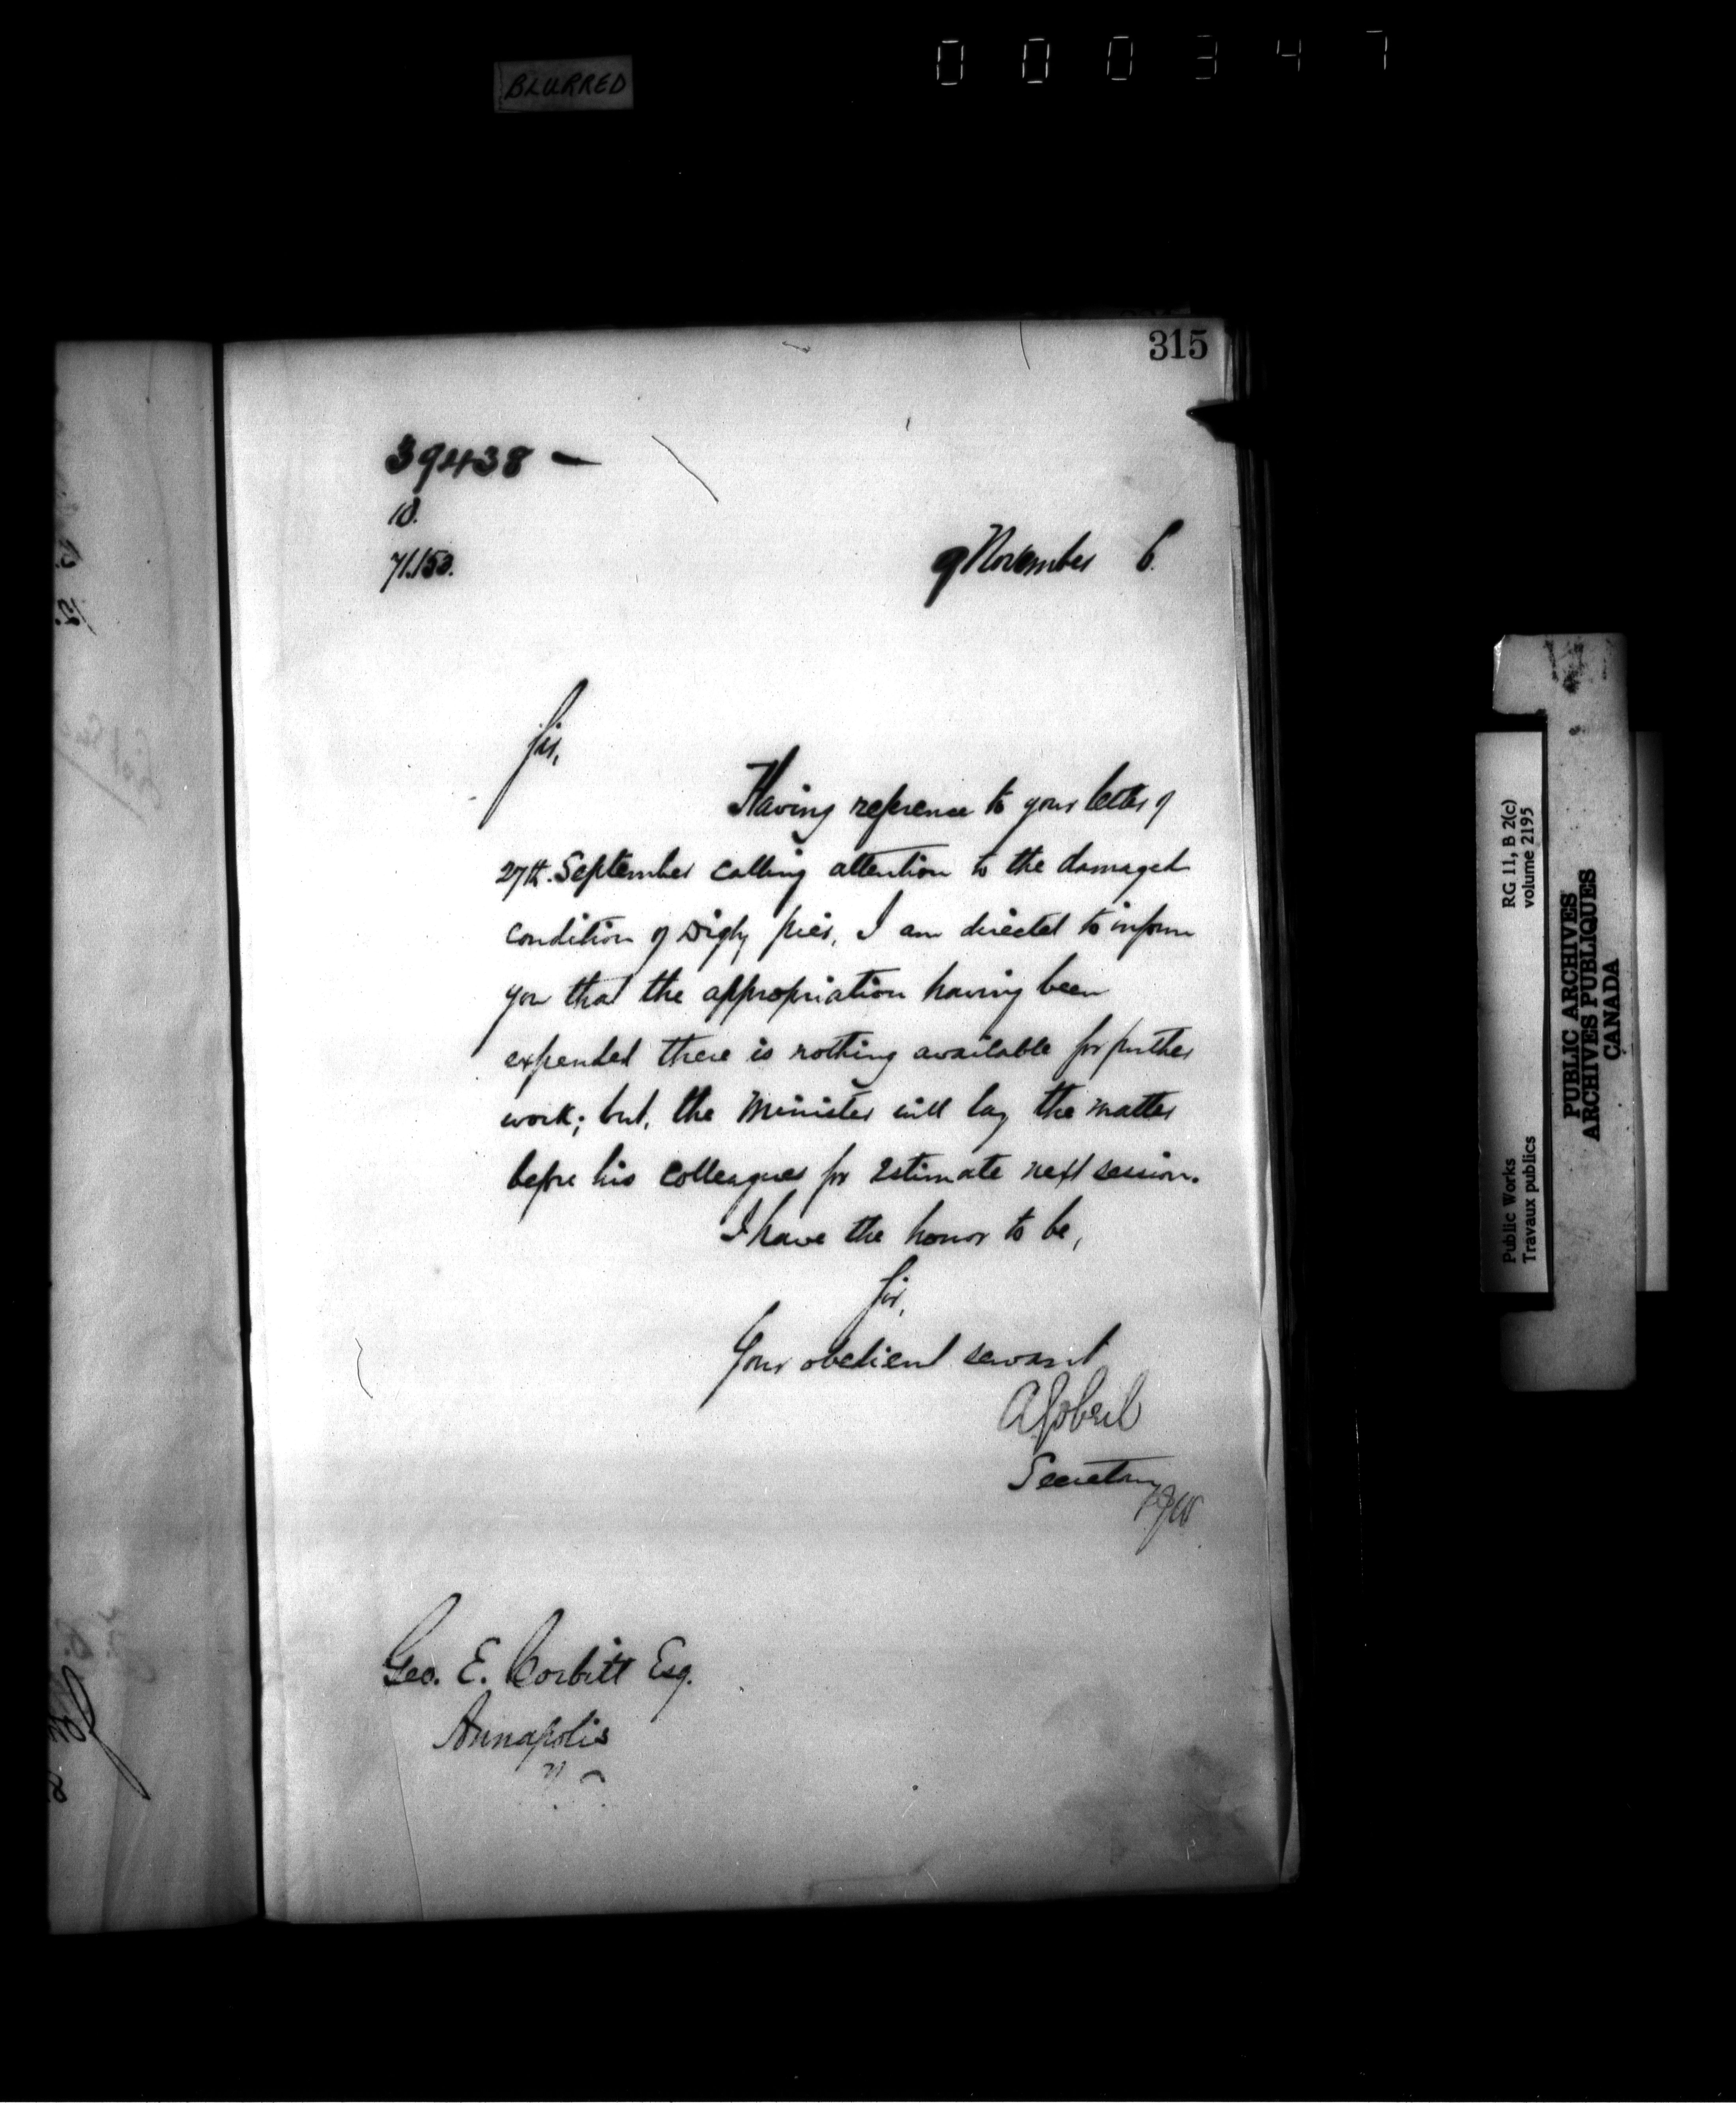 BLURRED
000347
315
39438 —
10.
71.153.
9 November 6.
Sir,
Having reference to your letter of
27th. September calling attention to the damaged
condition of Digby pier, I am directed to inform
you that the appropriation having been
expended there is nothing available for further
work; but, the Minister will lay the matter
before his colleagues for Estimate next session.
I have the honor to be,
Sir,
Your obedient servant
A Gobeil
Secretary
Geo. E. Corbitt Esq.
Annapolis
RG 11, B 2(c)
volume 2195
Public Works
Travaux publics
PUBLIC ARCHIVES
ARCHIVES PUBLIQUES
CANADA